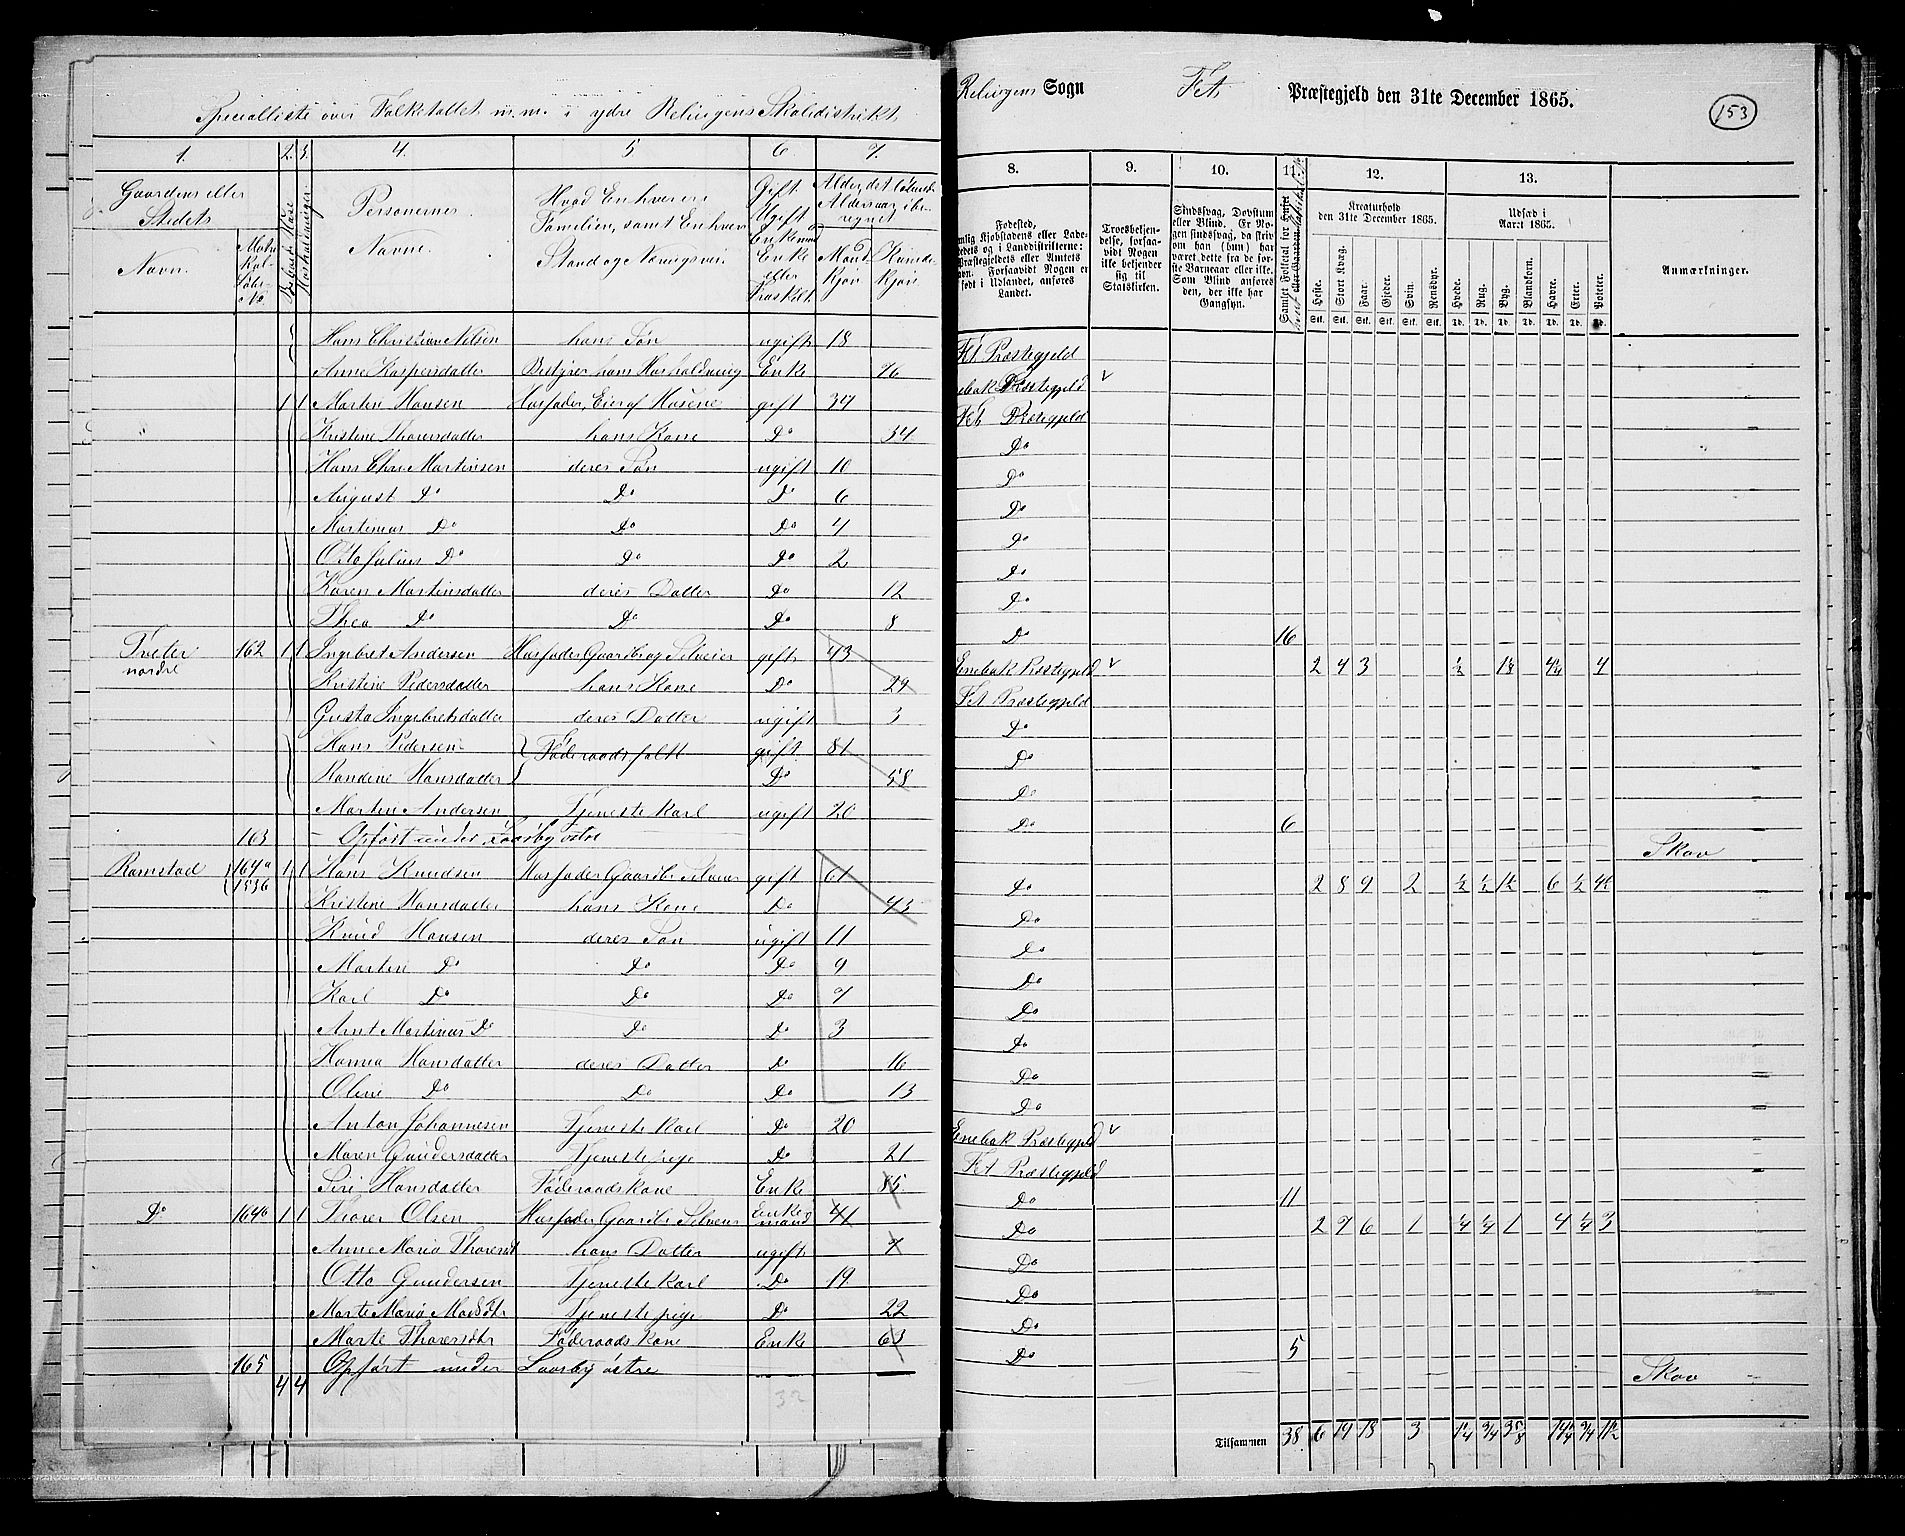 Specialliste over Folketallet m.m. i ydre Relingens Skoledistrikt
Relingens Sogn Fet Præstegjeld den 31te December 1865.
153
1. 2. 3. 4. 5. 6. 7.
8. 9. 10. 11. 12. 13.
Gaardens eller Stedets
Navn.
Beboede Huse
Husholdninger.
Personernes
Navne.
Hvad Enhver er i
Familien, samt Enhvers
Stand og Næringsvei
Gift
Ugift
Enkemand
Enke
eller
Fraskilt
Mandkjøn
Kvindekjøn
Fødested,
Troesbekjendelse, forsaavidt Nogen ikke bekjender sig til Statskirken.
Sindssvag, Døvstum eller Blind. Er Nogen sindssvag, da skriv om han (hun) har været dette fra de første Barneaar eller ikke. Som Blind anføres den, der ikke har Gangsyn.
Kreaturhold
den 31te December 1865.
Heste. Stort Kvæg. Faar. Gjeder. Svin. Rensdyr.
Udsæd i
Aaret 1865.
Hvede. Rug. Byg. Blandkorn. Havre. Erter. Poteter.
Anmærkninger.
Hans Christian Nilsen hans Søn ugift 18 Fet Præstegjeld
Anne Kaspersdatter Bestyrer hans Husholdning Enke 76 Enebak Præstegjeld
1 1 Martin Hansen Husfader, Eier af Husene gift 34 Fet Præstegjeld
Kristine Thorersdatter hans Kone Do 34 Do
Hans Chr. Martinsen deres Søn ugift 10 Do
August Do Do Do 6 Do
Martinius Do Do Do 4 Do
Otto Julius Do Do Do 2 Do
Karen Martinsdatter deres Datter Do 12 Do
Thea Do Do Do 8 Do 16
Tveter nordre 162 1 1 Ingebret Andersen Husfader Gaardbr og Selveier gift 43 Enebak Præstegjeld 2 4 3
Kristine Pedersdatter hans Kone Do 29 Fet Præstegjeld
Gusta Ingebretsdatter deres Datter ugift 3 Do
Hans Pedersen Føderaadsfolk gift 81 Do
Randine Hansdatter Do 58 Do
Martin Andersen Tjenestekarl ugift 20 Do 6
163 Opført under Laarby østre Skov
Ramstad 164a 1 1 Hans Knudsen Husfader Gaardbr Selveier gift 61 Do 2 8 9 2 ½ ½ 1½ 6 ½
Kristine Hansdatter hans Kone Do 43 Do
Knud Hansen deres Søn ugift 11 Do
Martin Do Do Do 9 Do
Karl Do Do Do 7 Do
Anet Martinus Do Do Do 3 Do
Hanna Hansdatter deres Datter Do 16 Do
Oline Do Do Do 13 Do
Anton Johannesen Tjenestekarl Do 20 Enebak Præstegjeld
Maren Gundersdatter Tjenestepige Do 21 Fet Præstegjeld
Siri Hansdatter Føderaadskone Enke 85 Do 11
Do 164b 1 1 Thorer Olsen Husfader Gaardbr Selveier Enkemand 41 Do 2 7 6 1 ¼ ¼ 1 4 ¼ 3
Anne Maria Thorersd hans Datter ugift 7 Do
Otto Gundersen Tjenestekarl Do 19 Do
Marte Maria Madsdtr Tjenestepige Do 22 Do
Marte Thorersdtr Føderaadskone Enke 63 Do 5
165 Opført under Laarby østre Skov
4 4
32
Tilsammen 38 6 19 18 3 1¼ ¾ 3⅝ 14¼ ¾ 11½